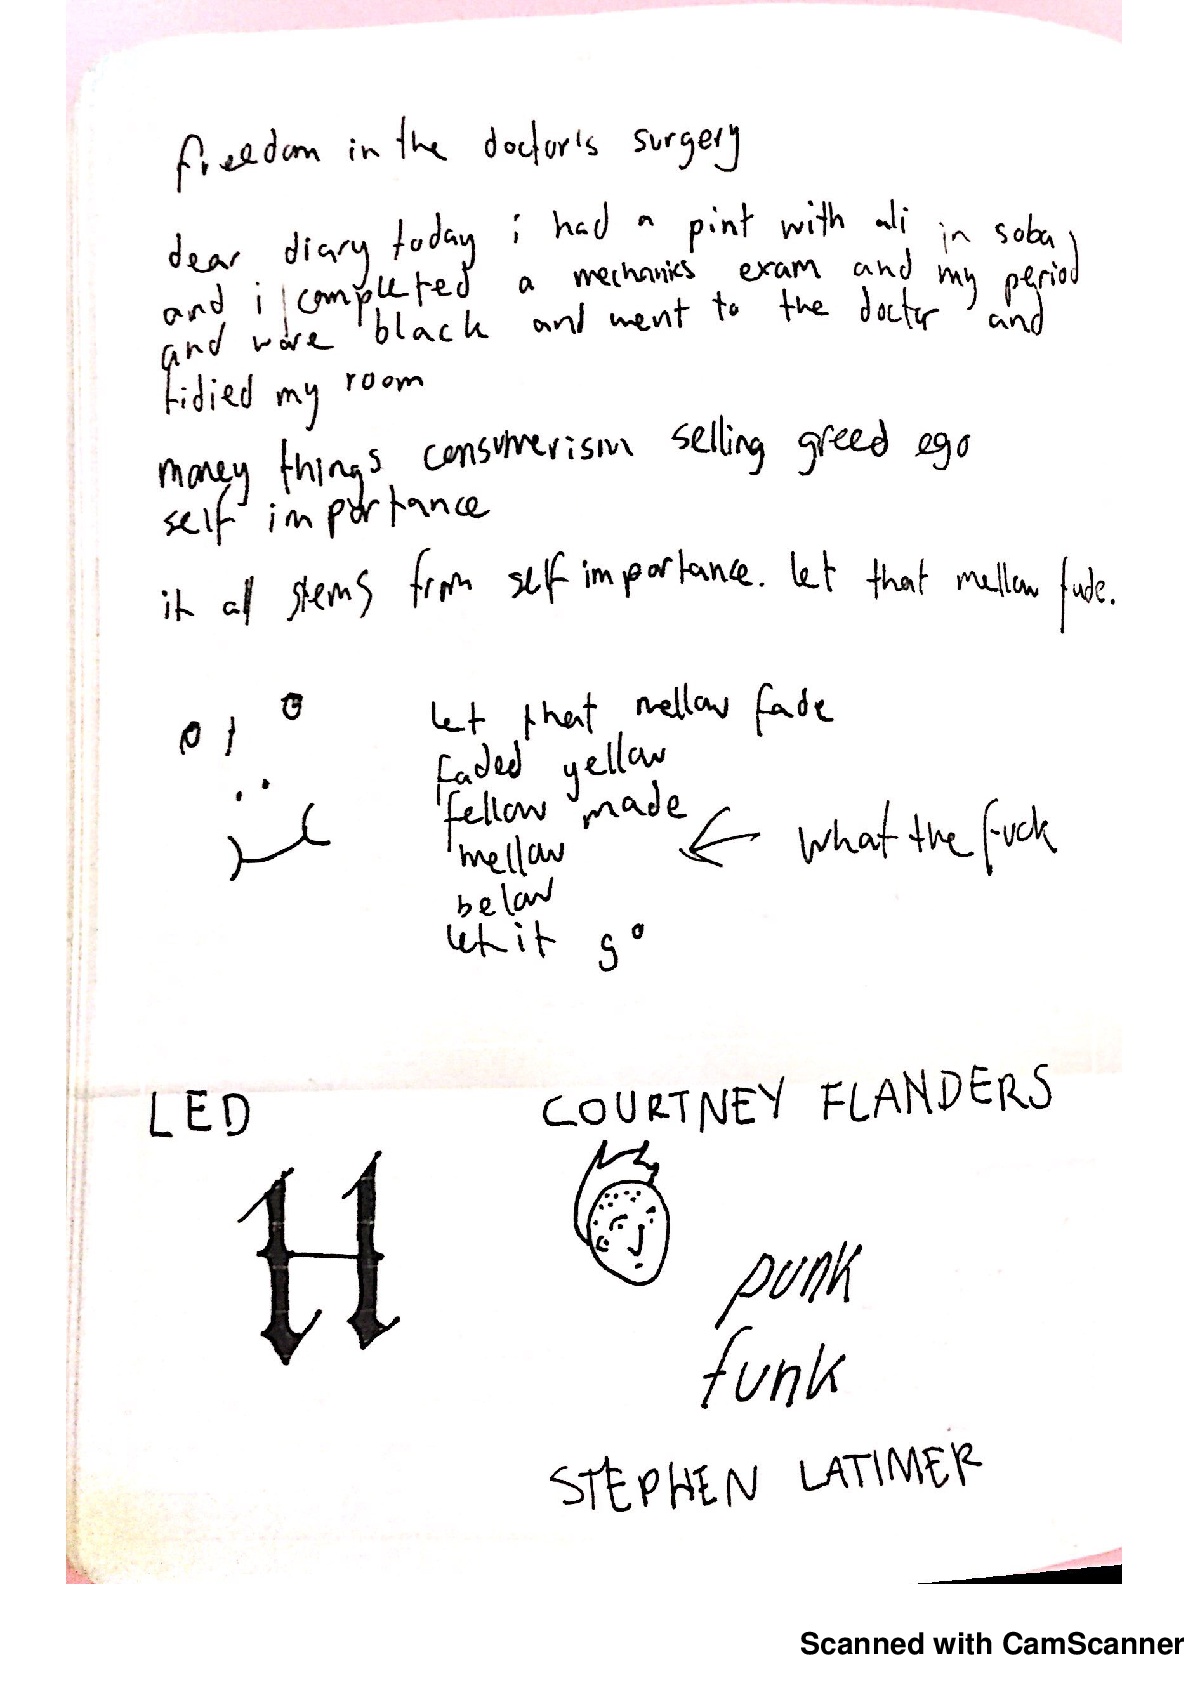 freedom in the doctor's surgery
dear diary today i had a pint with ali in soba,
and i completed a mechanics exam and my period
and wore black and went to the doctor and
tidied my room
money things consumerism selling greed ego
self importance
it all stems from self importance. let that mellow fade.
let that mellow fade
faded yellow
fellow made
mellow
below
let it go
← what the fuck
LED
H
COURTNEY FLANDERS
punk
funk
STEPHEN LATIMER
Scanned with CamScanner